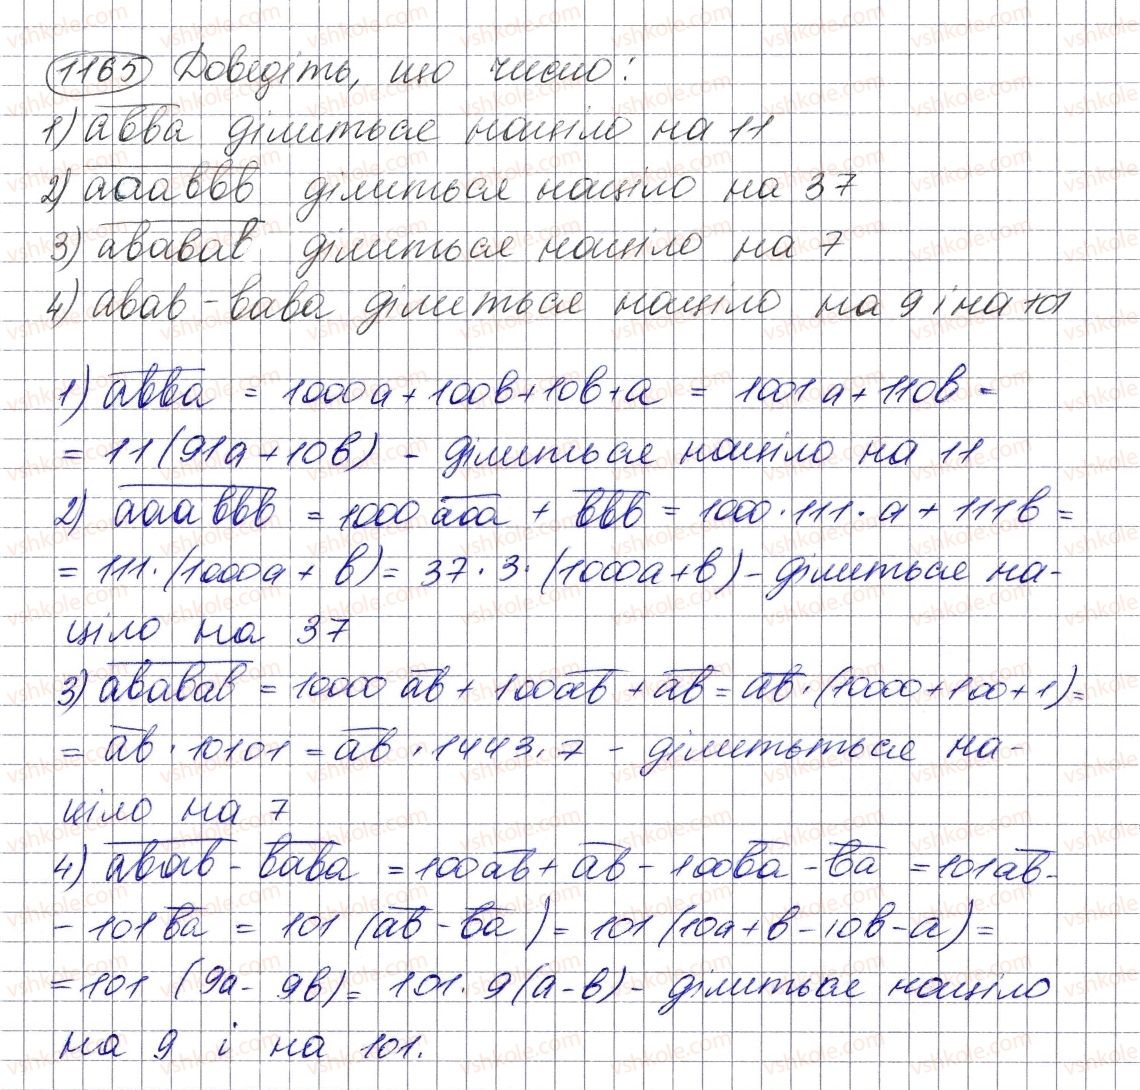 1165 Доведіть, що число:
1) авва ділиться націло на 11
2) аааввв ділиться націло на 37
3) ававав ділиться націло на 7
4) авав - вава ділиться націло на 9 і на 101
1) авва = 1000а + 100в + 10в + а = 1001а + 110в =
= 11(91а + 10в) - ділиться націло на 11
2) аааввв = 1000 ааа + ввв = 1000 · 111 · а + 111в =
= 111 · (1000а + в) = 37 · 3 · (1000а + в) - ділиться на-
ціло на 37
3) ававав = 10000 ав + 100ав + ав = ав · (10000 + 100 + 1) =
= ав · 10101 = ав · 1443 · 7 - ділитьться на-
ціло на 7
4) авав - вава = 100ав + ав - 100ва - ва = 101ав -
- 101ва = 101 (ав - ва) = 101 (10а + в - 10в - а) =
= 101 (9а - 9в) = 101 · 9(а - в) - ділиться націло
на 9 і на 101.